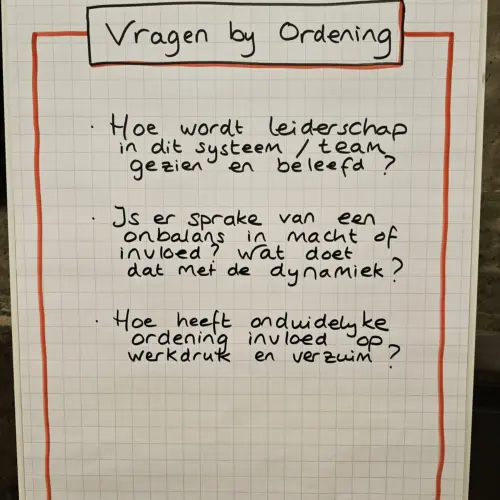 Vragen by Ordening
· Hoe wordt leiderschap
in dit systeem / team
gezien en beleefd ?
· Is er sprake van een
onbalans in macht of
invloed ? wat doet
dat met de dynamiek ?
· Hoe heeft onduidelyke
ordening invloed op
werkdruk en verzuim ?